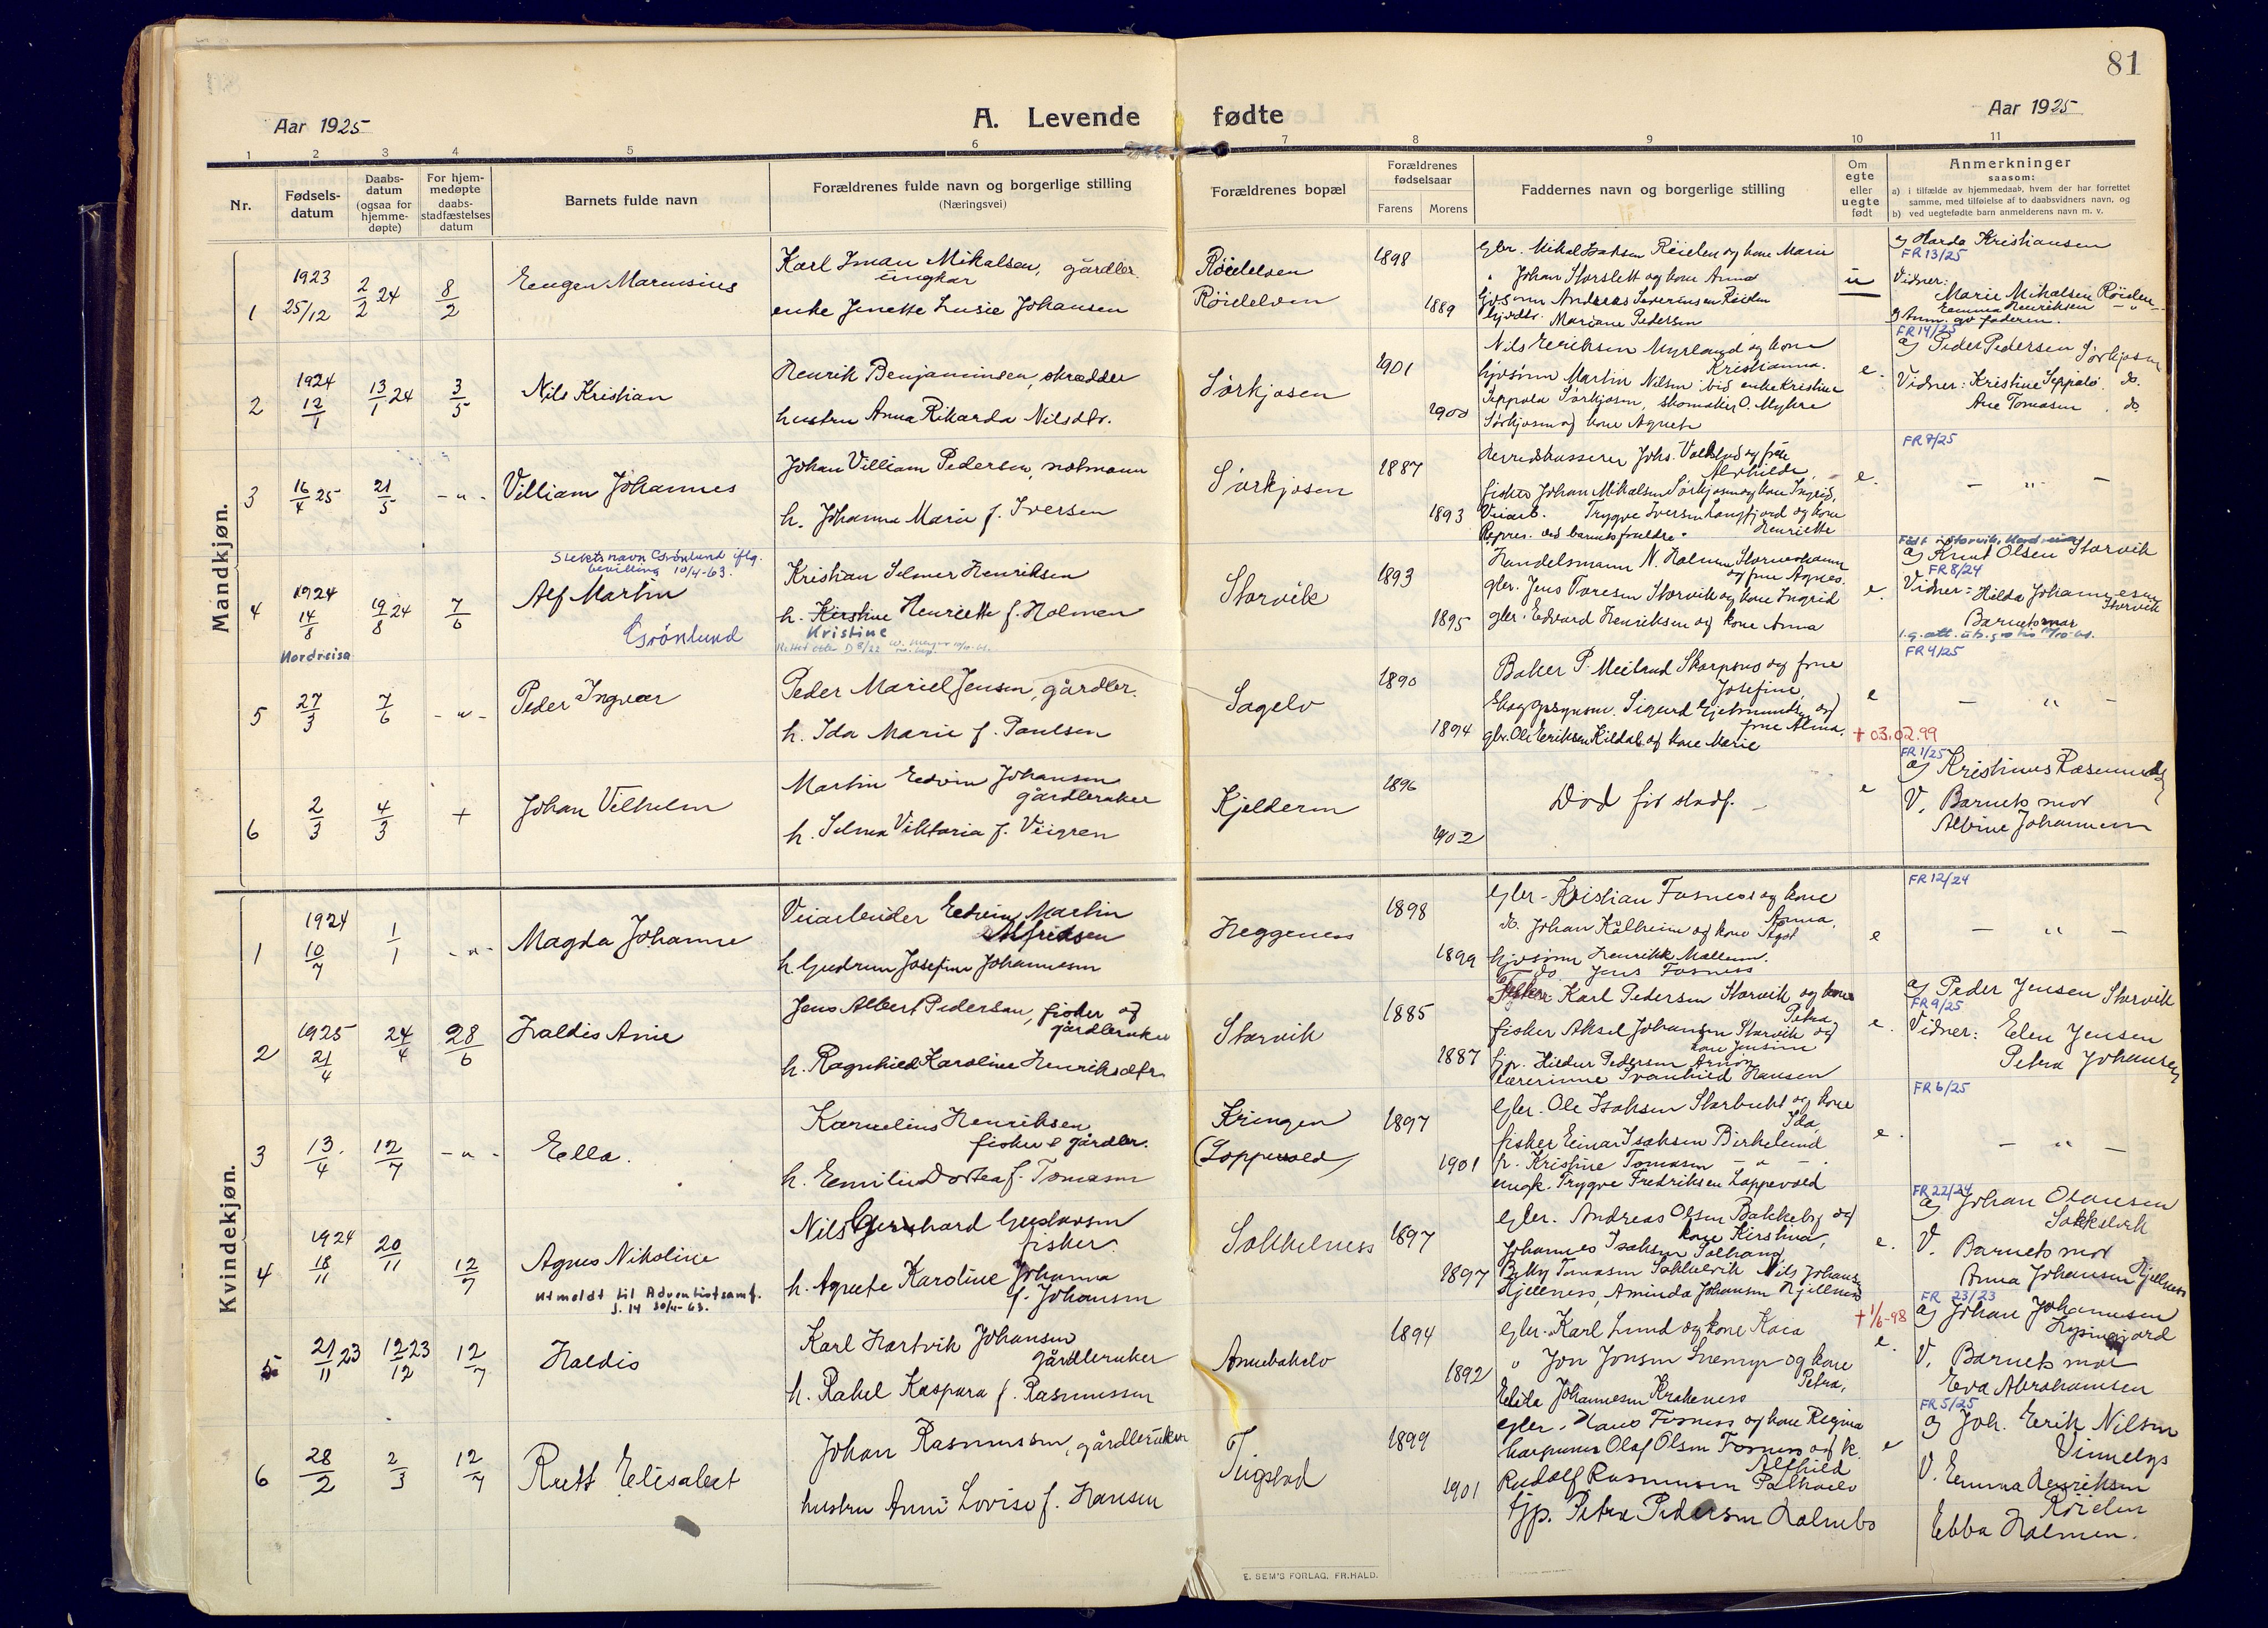 81
Aar 1925
A. Levende fødte
Aar 1925
1 2 3 4 5 6 7 8 9 10 11
Nr.
Fødsels-
datum
Daabs-
datum
(ogsaa for
hjemme-
døpte)
For hjem-
medøpte
daabs-
stadfæstelses
datum
Barnets fulde navn
Forældrenes fulde navn og borgerlige stilling
(Næringsvei)
Forældrenes bopæl
Forældrenes
fødselsaar
Farens Morens
Faddernes navn og borgerlige stilling
Om
egte
eller
uegte
født
Anmerkninger
saasom:
a) i tilfælde av hjemmedaab, hvem der har forrettet
samme, med tilføielse af to daabsvidners navn, og
b) ved uegtefødte barn anmelderens navn m. v.
Mandkjøn.
1
1923
25/12
2/2 24
8/2
Eugen Marensius
Karl Iman Mikalsen, gårdbr.
ungkar
enke Jenette Lusie Johansen
Røielelven
Røielelven
1898
1889
gbr. Mikal Isaksen Røielen og kone Marie
" Johan Storslett og kone Anna
Andreas Severinsen Røielen
Mariane Pedersen
u
a) Harda Kristiansen
FR 13/25
Vidner:
Marie Mikalsen Røielen
Emma Henriksen - " -
b) Anm. av faderen.
2
1924
12/1
13/1 24
3/5
Nils Kristian
Henrik Benjaminsen, skrædder
hustru Anna Rikarda Nilsdtr.
Sørkjosen
1901
1900
Nils Eeriksen Myrland og kone
Kristianna.
gjvsønn Martin Nilsen ibid enke Kristine
Seppola Sørkjosen, skomaker O. Myhre
Sørkjosen og kone Agnete
e.
FR 14/25
a) Peder Pedersen Sørkjosen
Vidner: Kristine Seppalø. do.
Ane Tomasen . do.
3
16/4 25
21/5
- " -
Villiam Johannes
Johan Villiam Pedersen, notmann
h. Johanna Marie f. Iversen
Sørkjosen
1887
1893
Herredskasserer Johs. og frue
Alvhilde,
fisker Johan Mikalsen Sørkjosen og kone Ingrid,
Veiarb. Trygve Iversen Langfjord og kone
Henriette
Repres. ved barnets foreldre.
e.
FR 7/25
- " -
4
1924
14/8
Nordreisa
19/8 24
7/6
Slektsnavn Grönlund iflg.
bevilling 10/4-63.
Alf Martin
Grönlund
Kristian Selmer Henriksen
h. Kirstine Henriette f. Holmen
Kristine
Storvik
1893
1895
Handelsmann N. Holmen
og frue Agnes.
gbr. Jens Toresen Storvik og kone Ingrid
gbr. Edvard Henriksen og kone Anna
e.
Født i Storvik, Nordreisa
a) Knut Olsen Storvik
FR 8/24
Vidner: Hilda Johannesen
Storvik
Barnets mor
5
27/3
7/6
- " -
Peder Ingvar
Peder Mariel Jensen, gårdbr.
h. Ida Marie f. Paulsen
Sagelv
1890
1894
Baker P. Meiland Skarpsno og frue
Josefine,
Skogopsynsm. Sigurd Gjetmundsen og
frue Alma,
gbr. Ole Eeriksen Kildal og kone Marie
e
FR 4/25
- " -
+ 03.02.99
6
2/3
4/3
+
Johan Vilhelm
Martin Eedvin Johansen
gårdbruker
h. Selma Viktoria f. Veigren
Kjelderen
1896
1902
Død før stadf. -
e
FR 1/25
a) Kristines Rasmussen
V. Barnets mor
Albine Johannesen
Kvindekjøn.
1
1924
10/7
1/1
- " -
Magda Johanne
Veiarbeider Eedvin Martin
Alfredsen
h. Gudrun Josefine Johannesen
Heggeness
1898
1899
gbr. Kristian Fosness og kone
Anna,
do. Johan Kålheim og kone Ågot
gjvsønn Henrikk Mellem.
do Jens Fosness
e
FR 12/24
- " -
2
1925
21/4
24/4
28/6
Haldis Anie
Jens Albert Pedersen, fisker og
gårdbruker
h. Ragnhild Karoline Henriksdtr.
Storvik
1885
1887
Fisker Karl Pedersen Storvik og kone
Petra
fisker Aksel Johansen Storvik og
kone Jensine
Hildur Pedersen
Lærerinne Svanhild Hansen
e.
a) Peder Jensen Storvik
FR 9/25
Vidner: Elen Jensen
Petra Johansen
3
13/4
12/7
- " -
Eella.
Kornelius Henriksen
fisker & gårdbr.
h. Eemilie Dortea f. Tomasen
Kringen
(Loppevold)
1897
1901
gbr. Ole Isaksen Storbukt og kone
Ida,
fisker Einar Isaksen Birkelund
fr. Kristine Tomasen - " -
ungk. Trygve Fredriksen Loppevold
e.
FR 6/25
- " -
4
1924
18/11
20/11
12/7
Agnes Nikoline
Utmeldt til Adventistsamf.
J. 14 30/4-63.
Nils Gerhard Gustavsen
fisker.
h. Agnete Karoline Johanna
f. Johansen
Sokkelness
1897
1897
gbr. Andreas Olsen Bakkeby og
kone Kirstina,
Johannes Isaksen Solhaug
Betty Tomasen Sokkelvik Nils Johansen
Hjellness, Aminda Johansen Hjellness
e.
FR 22/24
a) Johan Olausen
Sokkelvik
V. Barnets mor
Anna Johansen Hjellness
5
21/11 23
12/12 23
12/7
Haldis
Karl Hartvik Johansen
gårdbruker
h. Rakel Kaspara f. Rasmussen
1894
1892
gbr. Karl Lund og kone Kaia
" Jon Jonsen Snemyr og kone
Petra,
Eelida Johannesen Krakeness
e.
+ 1/6-98
FR 23/23
a) Johan Johannesen
V. Barnets mor
Eva Abrahamsen
6
28/2
2/3
12/7
Rutt Elisabet
Johan Rasmussen, gårdbruker
hustru Anni Lovise f. Hansen
Tugstad
1899
1901
gbr. Hans Fosness og kone Regina
harpuner Olaf Olsen Fosness og k.
Alfhild
Rudolf Rasmussen
tjp. Petra Pedersen Holmbo
e
FR 5/25
a) Joh. Eerik Nilsen
Vinnelys
V. Emma Henriksen
Røielen
Ebba Holmen.
E. SEM'S FORLAG, FR.HALD.